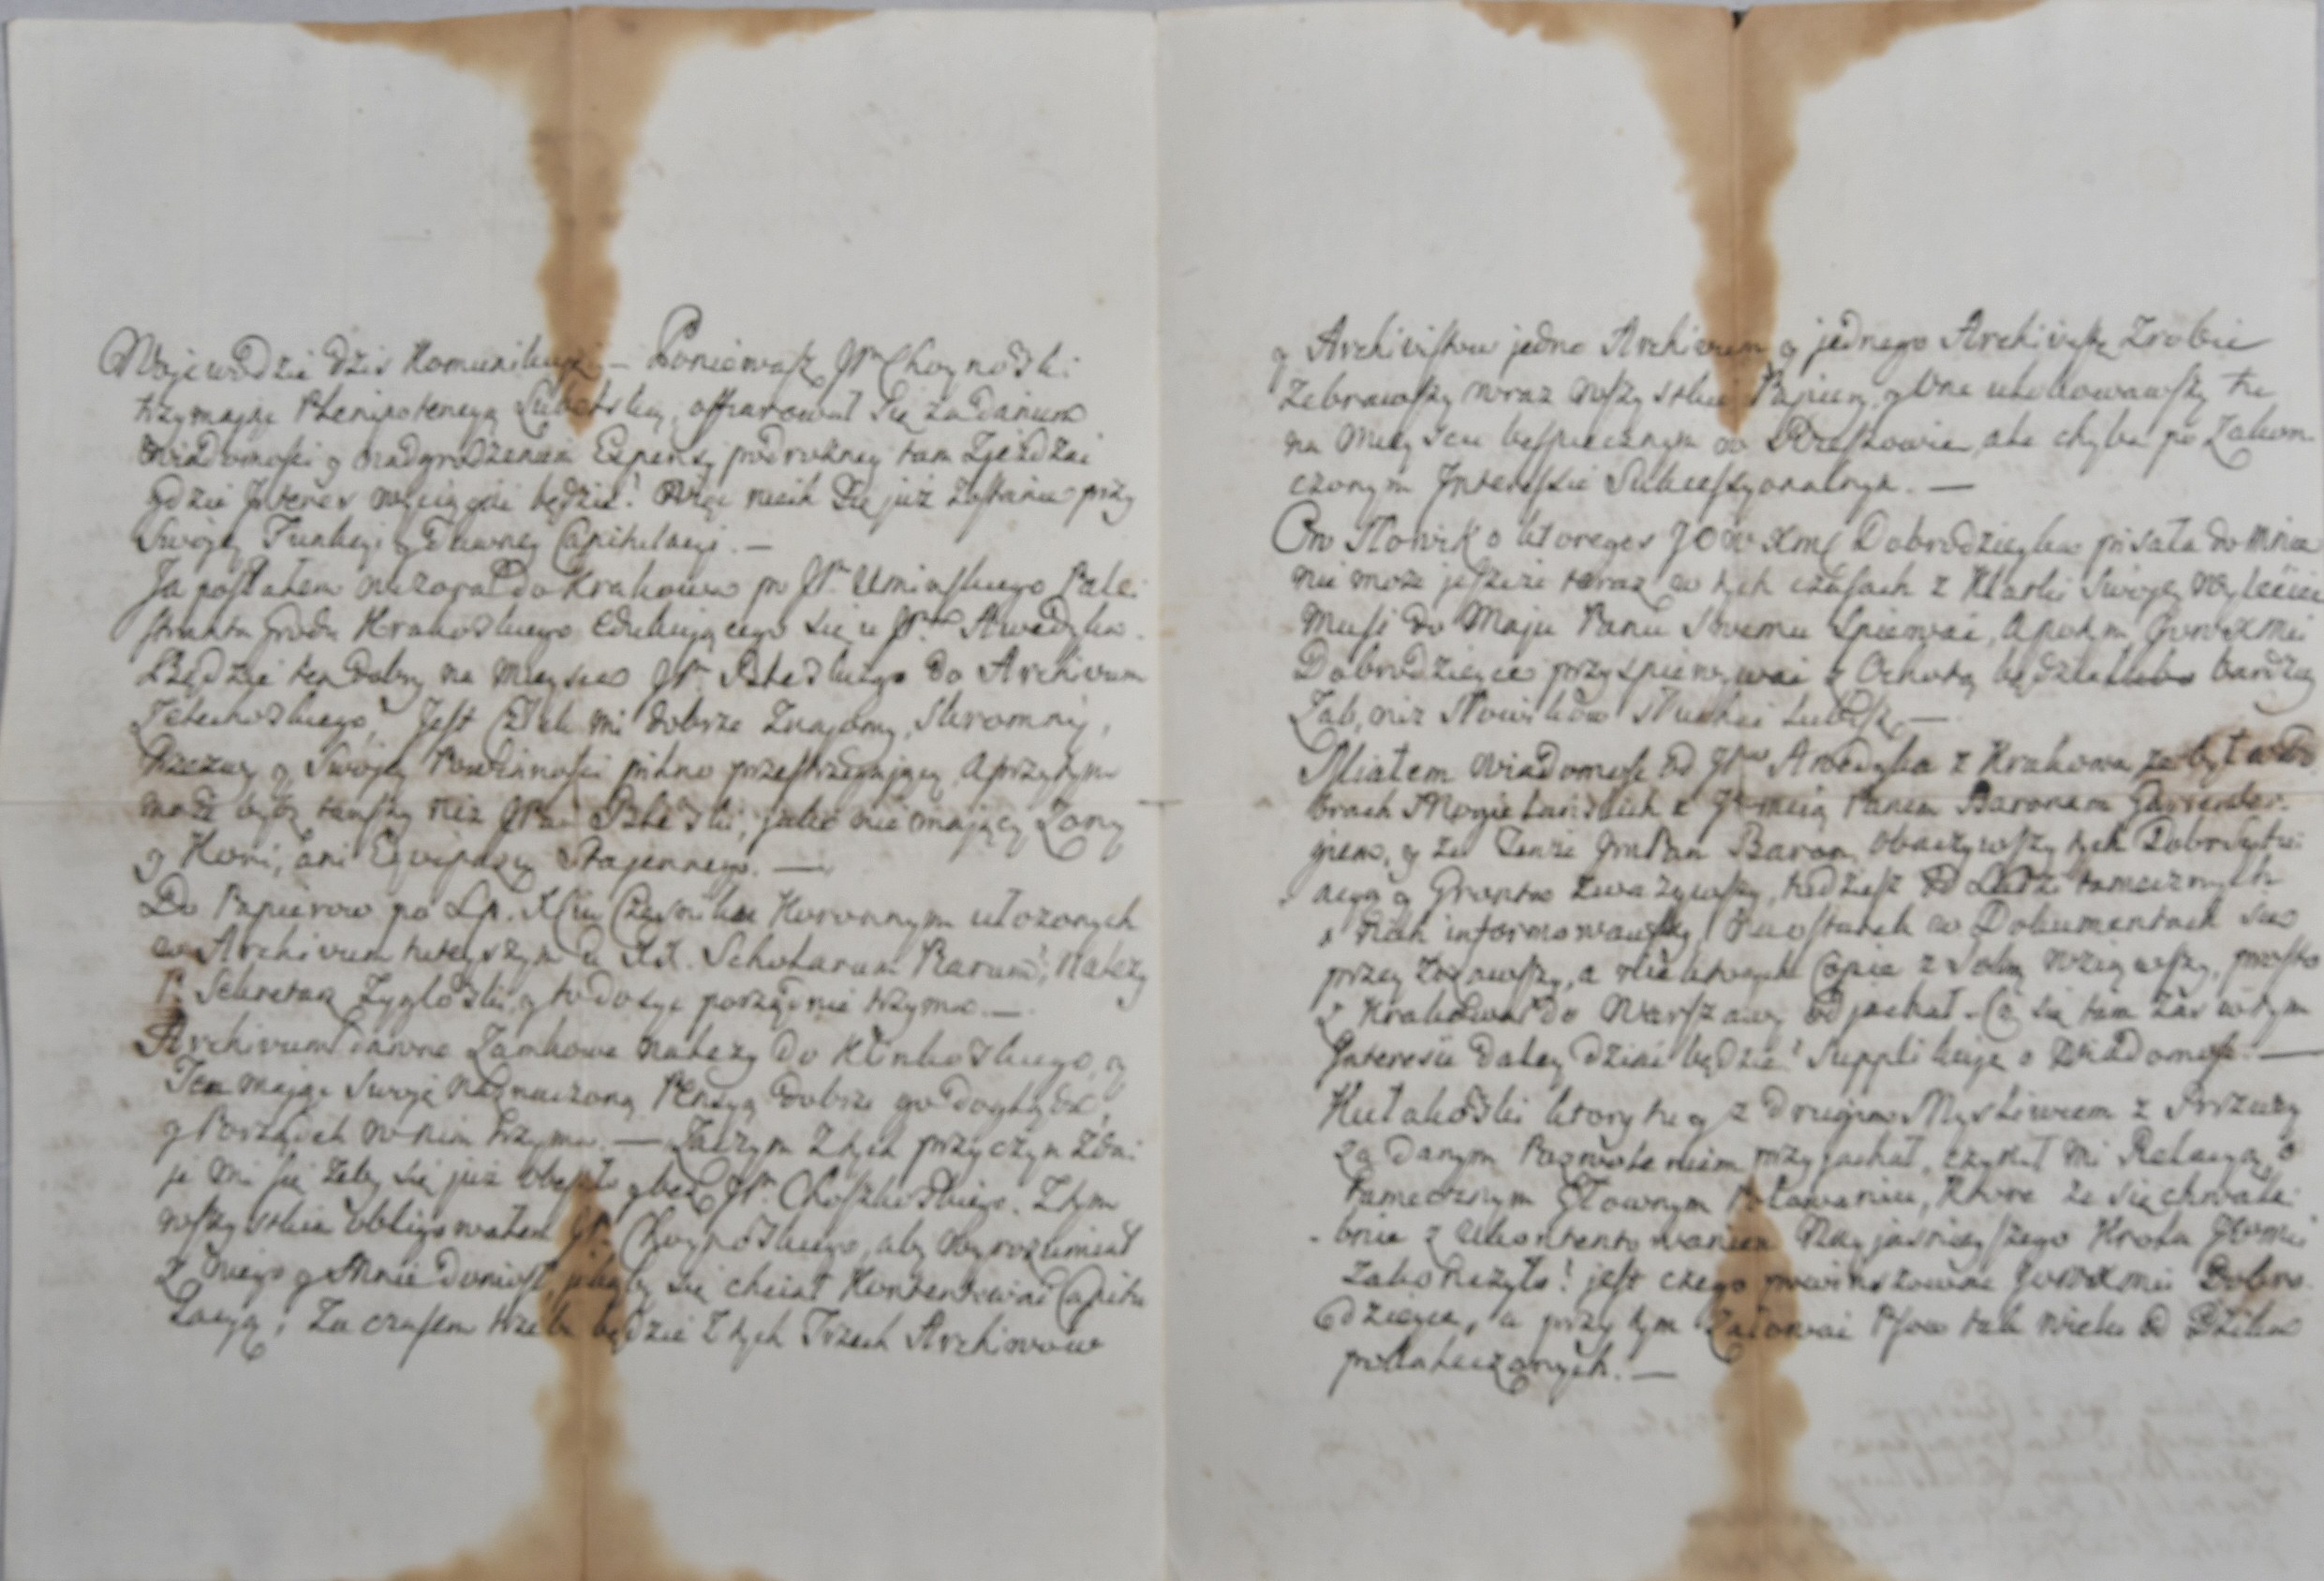 Wojewodzie dzis Komunikuję – Ponieważ Jp. Choynoski
trzymając Plenipotencyą Lubelską, offiarował się za daniem
wiadomości y nadgrodzeniem Expensy podrożney tam Zjeżdzać
gdzie Interes wyciągać będzie! Więc niech się już zostanie przy
Swojey Funkcyi y Dawney Capitulacyi. –
Ja posłałem wczora do Krakowa po Jp. Uminskiego Pale-
stranta Grodu Krakoskiego Edukującego się u Jp. Awedyka.
Będzie ten dobry na mieysce Jp. do Archivum
Jest Człek mi dobrze Znajomy, Skromny,
Trzezwy y Swojey Powinności pilno przestrzegający, a przytym
może bydz tańszy niż Jpan jako nie mający Zony
y Koni, ani Eqvipażu Stajennego. –
Do Papierow po Sp. Xciu Czesniku Koronnym ułożonych
w Archivum tuteyszym u XX. Scholarum Piarum, należy
P. Sekretarz Zygloski, y to dosyć porządnie trzyma. –
Archivum dawne Zamkowe należy do Klimkoskiego, y
Ten mając Swoję naznaczoną Pensyą dobrze go dogląda,
y Porządek w nim trzyma. – Zaczym z tych przyczyn zda-
je mi się żeby się już obeszło y bez Jp. Choszkoskiego. Z tym
wszystkim obligowałem Jp. Choynoskiego, aby wyrozumiał
z niego y Mnie doniosł, jakąby się chciał Kontentować Capitu-
lacyą; Za czasem trzeba będzie z tych Trzech Archivow
y Archivistow jedno Archivum y jednego Archivistę Zrobić
Zebrawszy wraz wszystkie Papiery, y One ulokowawszy tu
na mieyscu bespiecznym w Rzeszowie, ale chyba po Zakon-
czonym Interessie Sukcessyonalnym. –
Ow Słowik o ktorego JOW Xmć Dobrodzieyka pisała do mnie
nie może jeszcze teraz w tych czasach z Klatki Swojey wylecieć
Musi do Maju Panu Swemu Spiewać, a potym JOWXMci
Dobrodzieyce przyspiewywać z Ochotą będzie bardziey
Zab, niż Słowikow słuchać lubisz. –
Miałem wiadomość od Jp. Awedyka z Krakowa że był w Do-
brach Mogielańskich z Jmcią Panem Baronem
giem, y że Tenże Jm Pan Baron, obaczywszy tych Dobr Sytu-
acyą y Gronta zważywszy, tudziesz od Ludzi tamecznych
o nich informowawszy, Pozostałek w Dokumentach sw
przeyźrzawszy, a niektorych Copie z sobą wziąwszy, prosto
z Krakowa do Warszawy odjachał. Co się tam zas w tym
Interesie daley dziać będzie? Supplikuję o Wiadomość. –
Kułakoski ktory tu y z drugim Myśliwcem z
za danym Pozwoleniem przyjachał, czynił mi Relacyą o
tamecznym Głownym Polowaniu, Ktore że się chwale-
bnie z Ukontentowaniem Nayjasnieyszego Krola Jmci
Zakończyło! jest czego powinszować JOWXMci Dobro-
dzieyce, a przy tym Żałować Psow tak wielu od Dzika
pokaleczonych. –